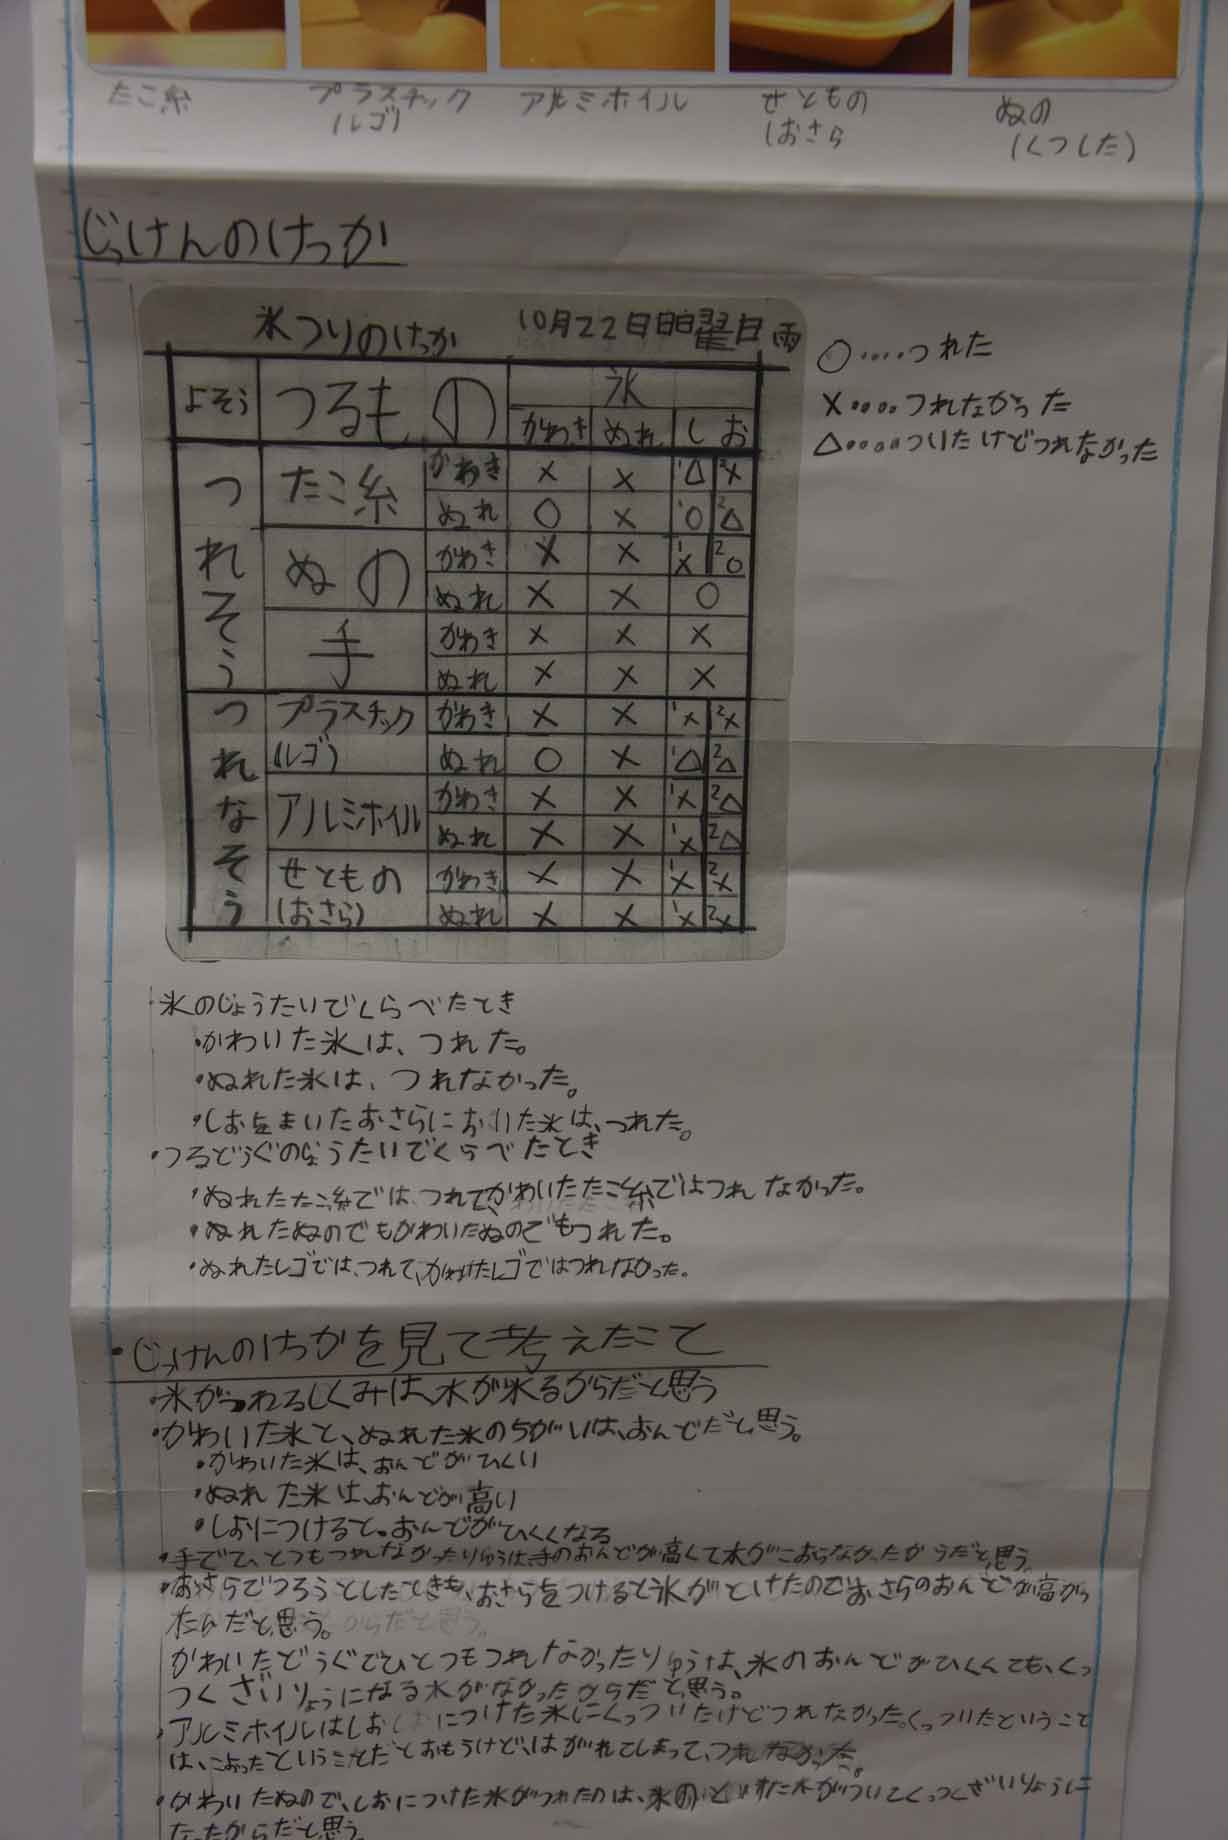 たこ糸
プラスチック
(レゴ)
アルミホイル
せともの
(おさら
ぬの
(くつした)
じっけんのけっか
氷つりのけっか 10月22日日曜日 雨
よそう つるもの 氷
かわき ぬれ しお
つれそう たこ糸 かわき × × 1△ 2×
ぬれ ○ × 1○ 2△
ぬの かわき × × 1× 2○
ぬれ × × ○
手 かわき × × ×
ぬれ × × ×
つれなそう プラスチック かわき × × 1× 2×
(レゴ) ぬれ ○ × 1△ 2△
アルミホイル かわき × × 1× 2△
ぬれ × × 1× 2△
せともの かわき × × 1× 2×
(おさら) ぬれ × × 1× 2×
○‥‥つれた
×‥‥つれなかった
△‥‥ついたけどつれなかった
・氷のじょうたいでくらべたとき
・かわいた氷は、つれた。
・ぬれた氷は、つれなかった。
・しおをまいたおさらにおいた氷は、つれた。
・つるどうぐのじょうたいでくらべたとき
・ぬれたたこ糸では、つれて、かわいたたこ糸ではつれなかった。
・ぬれたぬのでもかわいたぬのでもつれた。
・ぬれたレゴでは、つれて、かわいたレゴではつれなかった。
・じっけんのけっかを見て考えたこと
・氷がつれるしくみは、水が氷るからだと思う
・かわいた氷と、ぬれた氷のちがいは、おんどだと思う。
・かわいた氷は、おんどがひくい
・ぬれた氷は、おんどが高い
・しおにつけると、おんどがひくくなる
・手でひとつもつれなかったりゆうは、手のおんどが高くて水がこおらなかったからだと思う。
・おさらでつろうとしたときも、おさらをつけると氷がとけたのでおさらのおんどが高かっ
たんだと思う。からだと思う。
かわいたどうぐでひとつもつれなかったりゆうは、氷のおんどがひくくても、くっ
つくざいりょうになる水がなかったからだと思う。
・アルミホイルはしおにつけた氷にくっついたけどつれなかった。くっついたということ
は、こおったということだとおもうけど、はがれてしまって、つれなかった。
・かわいたぬので、しおにつけた氷がつれたのは、氷のとけた水がついてくっつくざいりょうに
なったからだと思う。